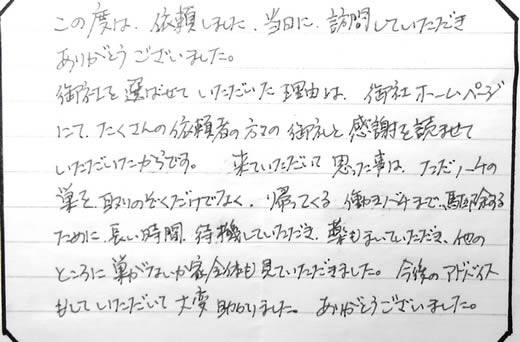 この度は、依頼しました、当日に、訪問していただき
ありがとうございました。
御社を選ばせていただいた理由は、御社ホームページ
にて、たくさんの依頼者の方々の御礼と感謝を読ませて
いただいたからです。 来ていただいて思った事は、ただハチの
巣を、取りのぞくだけでなく、帰ってくる働きバチまで、駆除する
ために、長い時間、待機していただき、薬もまいていただき、他の
ところに巣がないか家全体も見ていただきました。今後のアドバイス
もしていただいて大変助かりました。ありがとうございました。